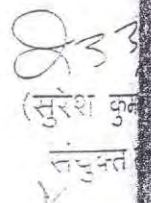 (सुरेश कुम
संयुक्त